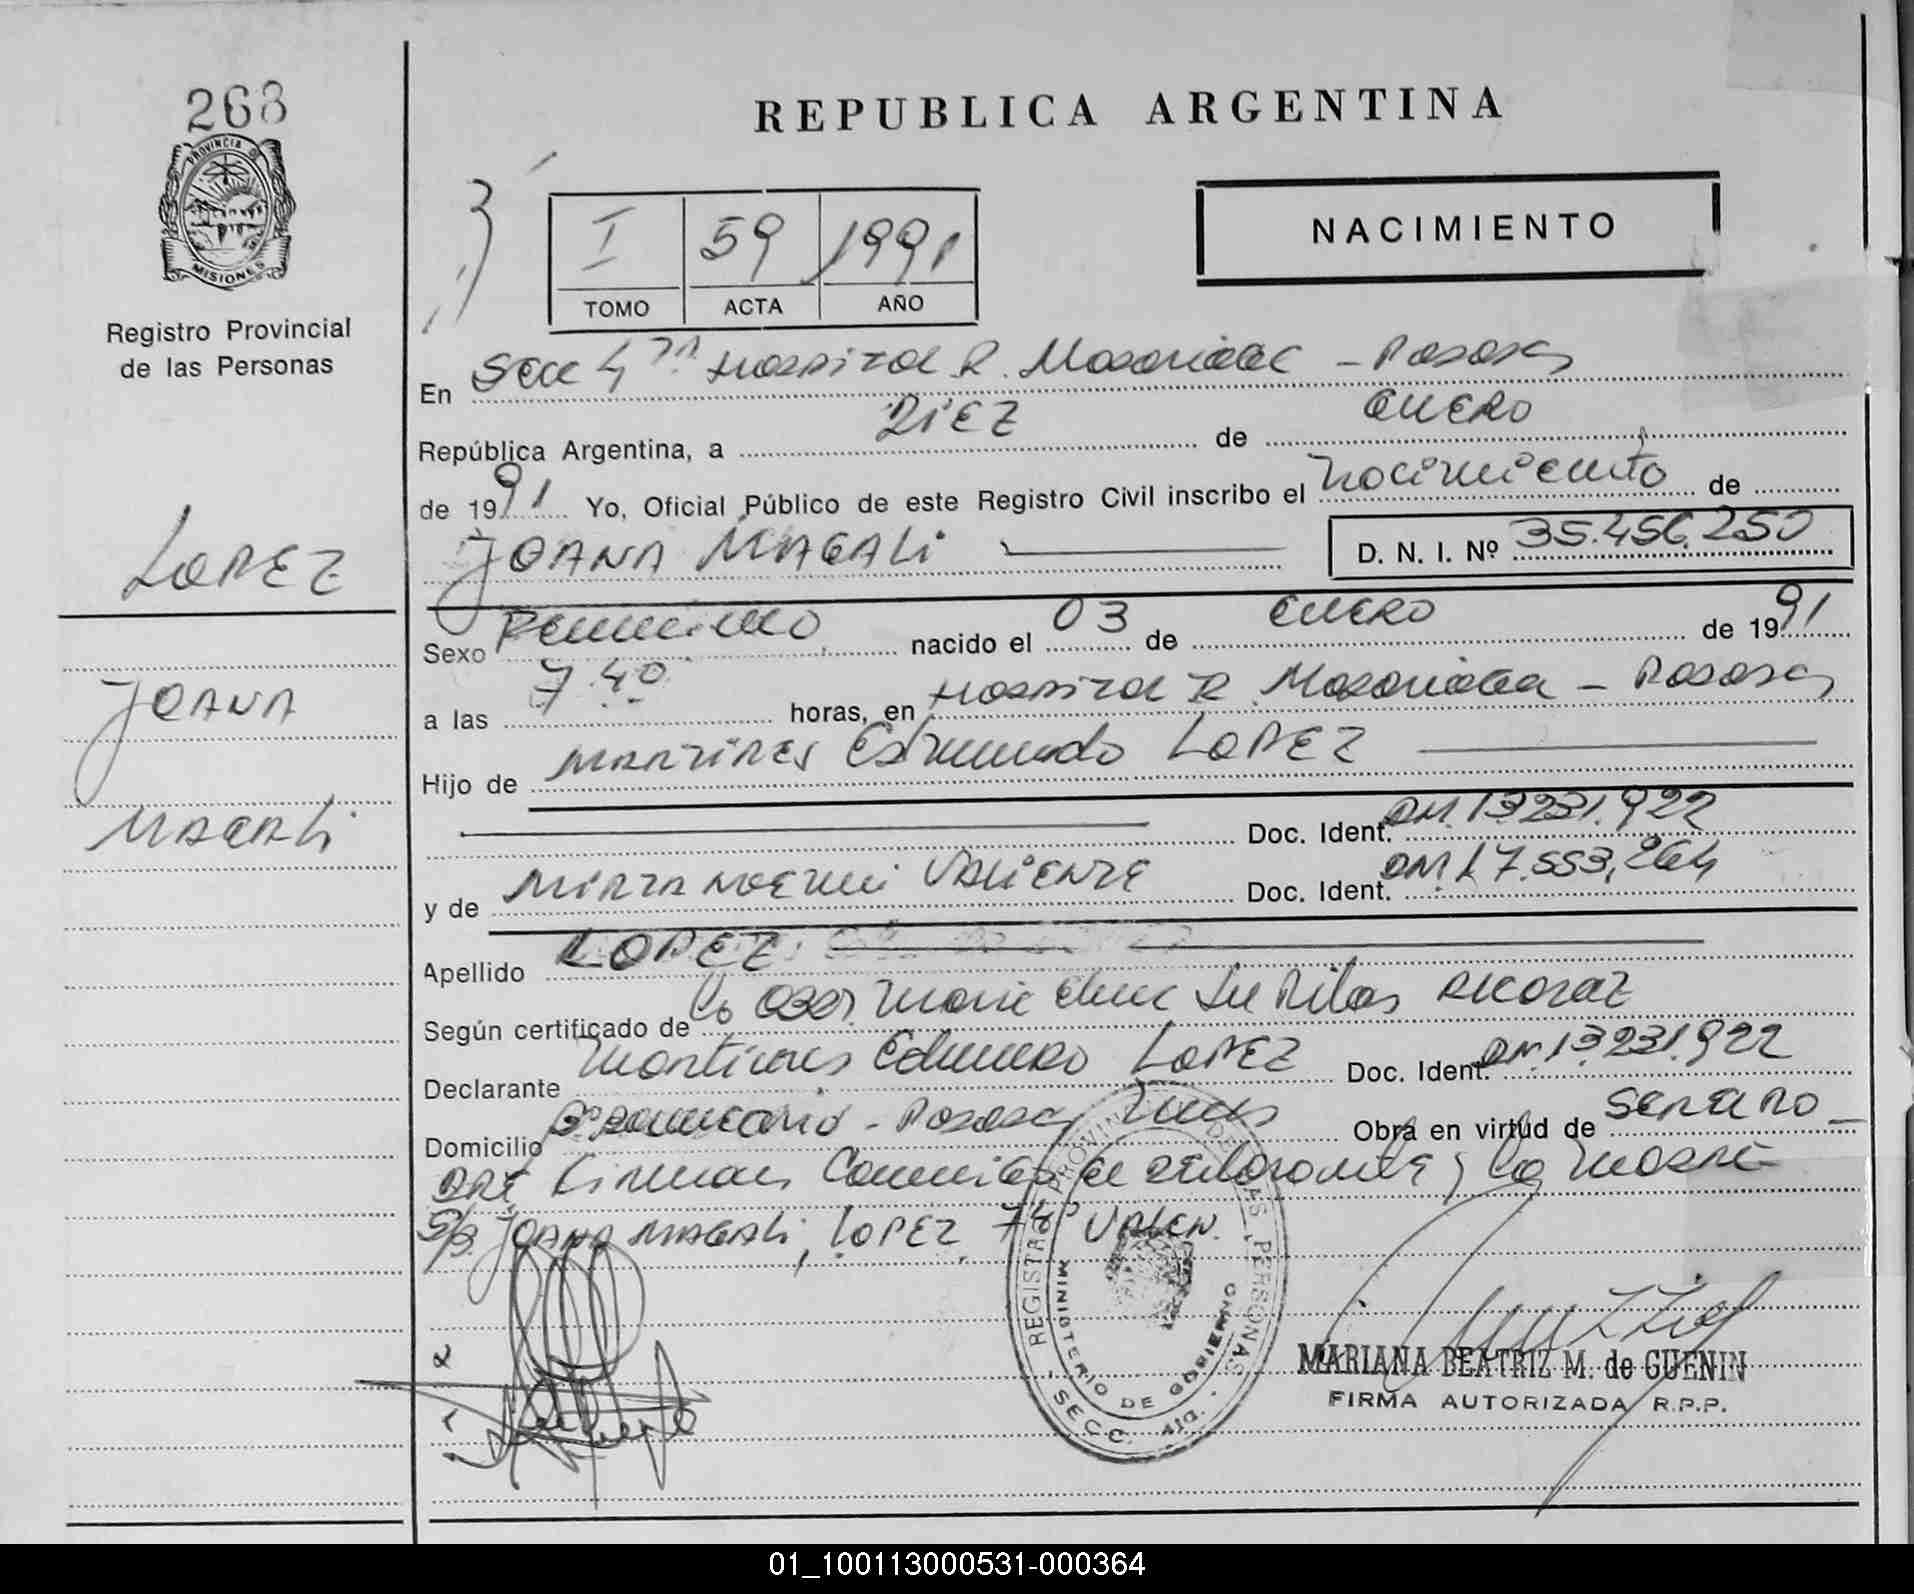 268
PROVINCIA DE
MISIONES
Registro Provincial
de las Personas
LOPEZ
JOANA
MAGALI
REPUBLICA ARGENTINA
I 59 1991
TOMO ACTA AÑO
NACIMIENTO
En Secc 4ta Hospital R. Madariaga - Posadas
República Argentina, a DIEZ de ENERO
de 1991 Yo, Oficial Público de este Registro Civil inscribo el Nacimiento de
JOANA MAGALI
D. N. I. Nº 35.456.250
Sexo Femenino nacido el 03 de ENERO de 1991
a las 7.40 horas, en Hospital R. Madariaga - Posadas
Hijo de MARTIRES Edmundo LOPEZ
Doc. Ident. DNI. 13.231.922
y de MIRTA NOEMI VALIENTE Doc. Ident. DNI 17.553.264
Apellido LOPEZ
Según certificado de la Obst. Maria del Pilar
Declarante Martires Edmundo LOPEZ Doc. Ident. DNI. 13.231.922
Domicilio - Posadas Mnes Obra en virtud de
firman el declarante y la madre
S/B. JOANA MAGALI, LOPEZ. 7.40 VALEN.
REGISTRO PROVINCIAL DE LAS PERSONAS
MINISTERIO DE GOBIERNO
SECC. 4ta.
MARIANA BEATRIZ M. de GUENIN
FIRMA AUTORIZADA R.P.P.
01_100113000531-000364